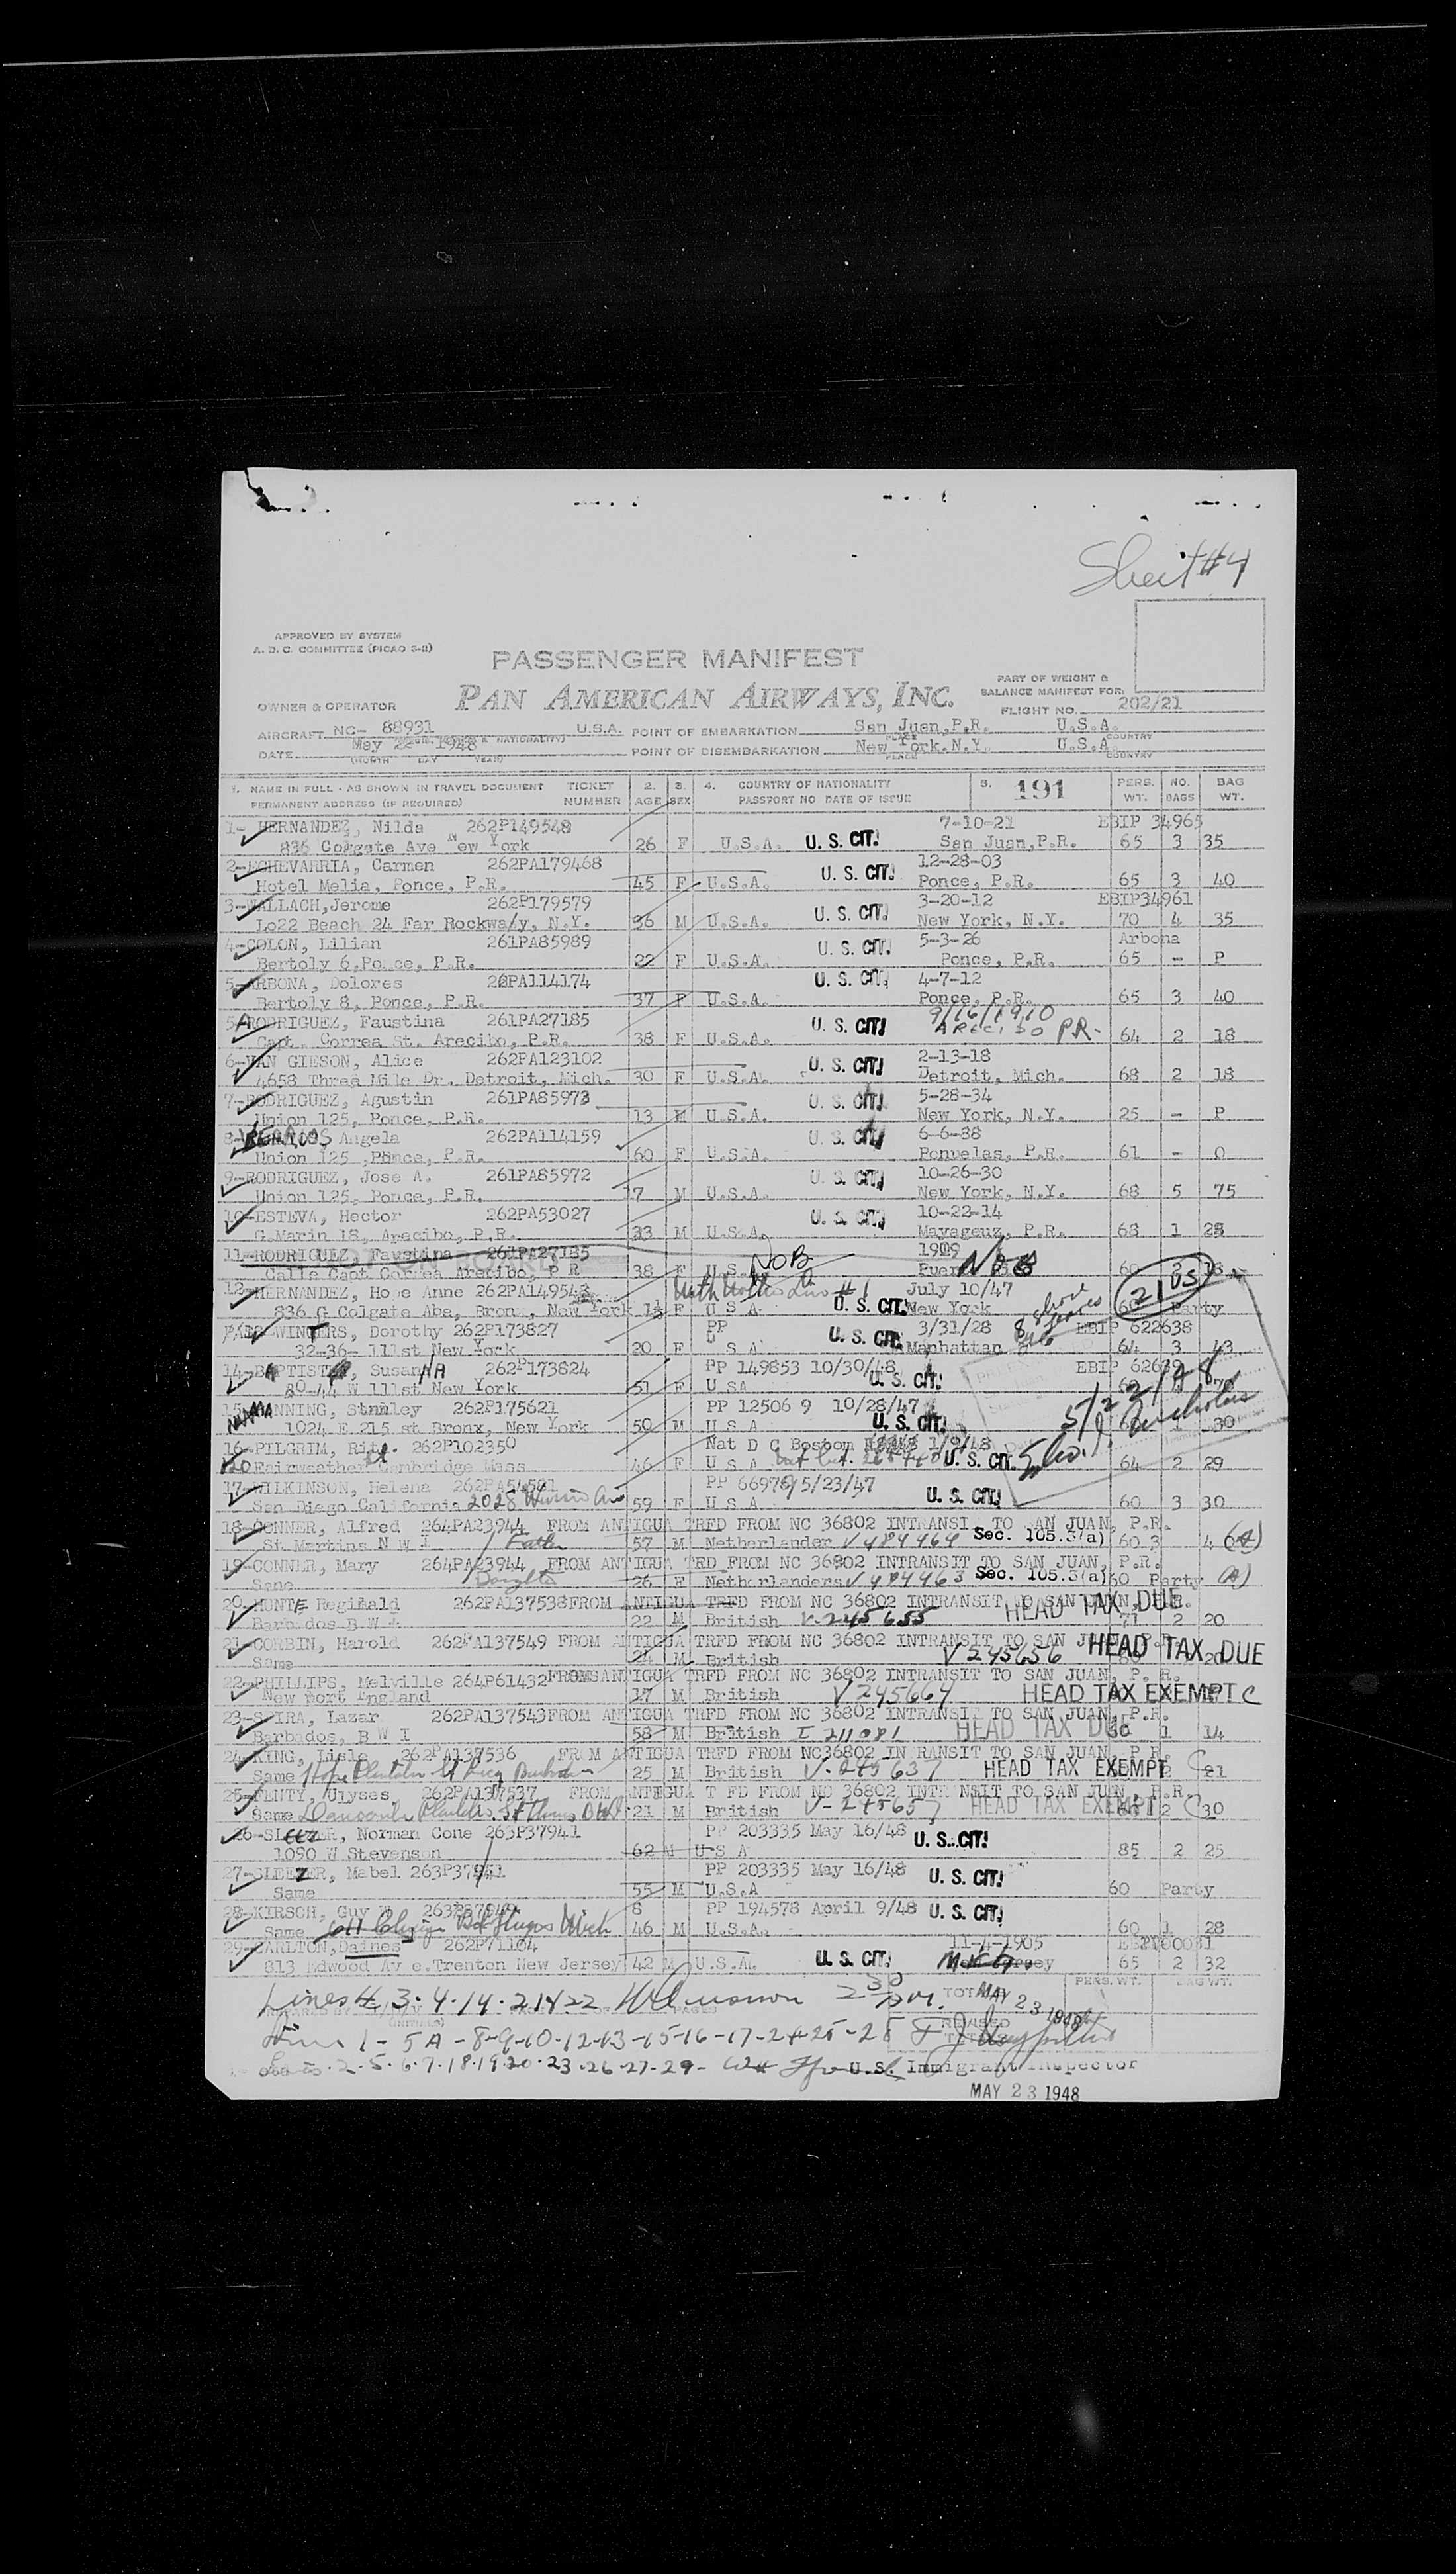 Sheet #4
APPROVED BY SYSTEM
A. D. C. COMMITTEE (PICAO 3-II)
PASSENGER MANIFEST
PART OF WEIGHT &
BALANCE MANIFEST FOR:
OWNER & OPERATOR PAN AMERICAN AIRWAYS, INC. FLIGHT NO. 202/21
AIRCRAFT NC- 88931 U.S.A. POINT OF EMBARKATION San Juan,P.R. U.S.A.
DATE May 1948 POINT OF DISEMBARKATION New York.N.Y. U.S.A
(MONTH DAY YEAR) PLACE COUNTRY
1. NAME IN FULL - AS SHOWN IN TRAVEL DOCUMENT TICKET 2. 3. 4. COUNTRY OF NATIONALITY 5. 191 PERS. NO. BAG
PERMANENT ADDRESS (IF REQUIRED) NUMBER AGE SEX PASSPORT NO DATE OF ISSUE WT. BAGS WT.
1- HERNANDEZ, Nilda 262P149548 7-10-21 EBIP 34965
836 Colgate Ave New York 26 F U.S.A. U. S. CIT. San Juan,P.R. 65 3 35
2-ECHEVARRIA, Carmen 262PA179468 12-28-03
Hotel Melia, Ponce, P.R. 45 F U.S.A. U. S. CIT. Ponce, P.R. 65 3 40
3-WALLACH,Jerome 262P179579 3-20-12 EBIP34961
Lo22 Beach 24 Far Rockway, N.Y. 36 M U.S.A. U. S. CIT. New York, N.Y. 70 4 35
4-COLON, Lilian 261PA85989 5-3-26 Arbona
Bertoly 6,Ponce, P.R. 22 F U.S.A. U. S. CIT. Ponce, P.R. 65 - P
5-ARBONA, Dolores PA114174 4-7-12
Bertoly 8, Ponce, P.R. 37 F U.S.A. U. S. CIT. Ponce, P.R. 65 3 40
5A RODRIGUEZ, Faustina 261PA27185 9/16/1910
Capt. Correa St. Arecibo, P.R. 38 F U.S.A. U. S. CIT. ARECIBO P.R. 64 2 18
6-VAN GIESON, Alice 262PA123102 2-13-18
4658 Three Mile Dr. Detroit, Mich. 30 F U.S.A. U. S. CIT. Detroit, Mich. 68 2 18
7-RODRIGUEZ, Agustin 261PA85973 5-28-34
Union 125, Ponce, P.R. 13 M U.S.A. U. S. CIT. New York, N.Y. 25 - P
8-BERRIOS Angela 262PA114159 6-6-88
Union 125 ,Ponce, P.R. 60 F U.S.A. U. S. CIT. P.R. 61 - 0
9-RODRIGUEZ, Jose A. 261PA85972 10-26-30
Union 125, Ponce, P.R. 17 M U.S.A. U. S. CIT. New York, N.Y. 68 5 75
10-ESTEVA, Hector 262PA53027 10-22-14
G.Marin 18, Arecibo, P.R. 33 M U.S.A. U. S. CIT. Mayaguez, P.R. 68 1
11-RODRIGUEZ, Faustina 261PA27185 NOB 1909
Calle Capt Correa Arecibo, P R 38 F U.S.A NOB 60 2 18
12-HERNANDEZ, Hope Anne 262PA149548 With Mother Line #1 July 10/47 2 US
836 Colgate Abe, Bronx, New York F U S A U. S. CIT. New York Party
WINTERS, Dorothy 262P173827 PP 3/31/28 EBIP 622638
32-36- 111st New York 20 F U S A U. S. CIT. Manhattan 64 3 43
14-BAPTISTA, SusanNA 262P173824 PP 149853 10/30/48 EBIP
80-44 W 111st New York 51 F U SA U. S. CIT. 5/22/48
15- MANNING, Stanley 262P175621 PP 12506 9 10/28/47
1024 E 215 st Bronx, New York 50 M U S A U. S. CIT. 1 30
16-PILGRIM, Rita. 262P102350 Nat D C Boston 1/9/48
20 Fairweather St Cambridge Mass 46 F U S A U. S. CIT. 64 2 29
17-WILKINSON, Helena PP 66975 5/23/47
San Diego California 2028 59 F U S A U. S. CIT. 60 3 30
18-CONNER, Alfred 264PA23944 FROM ANTIGUA TRFD FROM NC 36802 INTRANSIT TO SAN JUAN, P.R.
St Martins N W I Father 57 M Netherlander V484464 Sec. 105.3(a) 60 3 4 (A)
19-CONNER, Mary 264PA23944 FROM ANTIGUA TRFD FROM NC 36802 INTRANSIT TO SAN JUAN, P.R.
Same Daughter 26 F Netherlanders V484463 Sec. 105.3(a) 60 Party (A)
20-HUNTE Reginald 262PA137538FROM ANTIGUA TRFD FROM NC 36802 INTRANSIT TO SAN JUAN, P.R.
Barbados B W I 22 M British V-245655 HEAD TAX DUE 71 2 20
21-CORBIN, Harold 262PA137549 FROM ANTIGUA TRFD FROM NC 36802 INTRANSIT TO SAN JUAN, P.R.
Same 24 M British V 245656 HEAD TAX DUE 20
22-PHILLIPS, Melville 264P61432FROM ANTIGUA TRFD FROM NC 36802 INTRANSIT TO SAN JUAN, P. R.
New port England 17 M British V245664 HEAD TAX EXEMPT C
23-SPIRA, Lazar 262PA137543FROM ANTIGUA TRFD FROM NC 36802 INTRANSIT TO SAN JUAN, P.R.
Barbados, B W I 58 M British I 211081 HEAD TAX DUE 1 14
24-KING, Lisle 262PA137536 FROM ANTIGUA TRFD FROM NC36802 IN RANSIT TO SAN JUAN, P.R.
Same Hope Plantation St Lucy 25 M British V-245637 HEAD TAX EXEMPT C 21
25-FLNTY, Ulyses, 262PA137537 FROM ANTIGUA T FD FROM NC 36802 INTR NSIT TO SAN JUAN, P.R.
Same 21 M British V-245657 HEAD TAX EXEMPT 2 C 30
26-SLEEZER, Norman Cone 263P37941 PP 203335 May 16/48
1090 W Stevenson 62 M U S A U. S. CIT. 85 2 25
27-SLEEZER, Mabel 263P37941 PP 203335 May 16/48
Same 55 M U.S.A U. S. CIT. 60 Party
28-KIRSCH, Guy W PP 194578 April 9/48
Same Big Mich 46 M U.S.A. U. S. CIT. 60 1 28
29-CARLTON,Daines 262P71104 11-4-1905
813 Edwood Av e.Trenton New Jersey 42 M U.S.A. U. S. CIT. 65 2 32
Lines # 3-4-14-21+22 2 30 P.M. TOTAL MAY 23 1948 PERS. WT. BAG WT.
Lines 1-5A-8-9-10-12-13-15-16-17-24-25-28
2-5-6-7-18-19-20-23-26-27-29- U.S. Immigrant Inspector
MAY 23 1948